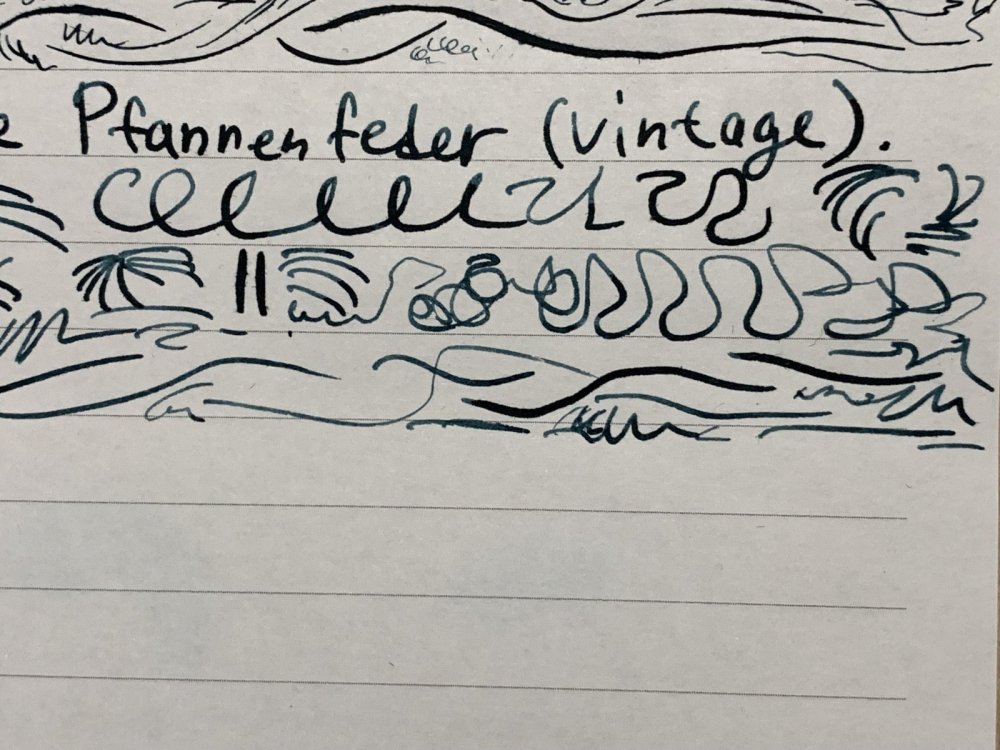 e Pfannenfeder (vintage).